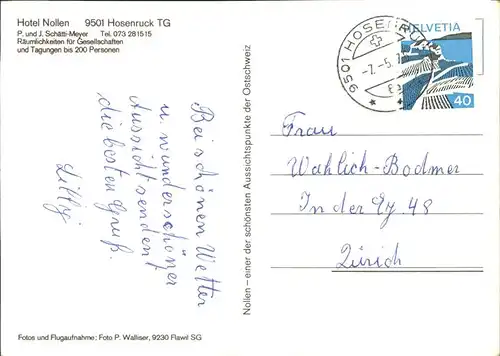 Hotel Nollen 9501 Hosenruck TG
P. und J. Schätti-Meyer Tel. 073 281515
Räumlichkeiten für Gesellschaften
und Tagungen bis 200 Personen
Bei schönen Wetter
u wunderschöner
Aussicht senden
die besten Gruß.
Lilly
Fotos und Flugaufnahme: Foto P. Walliser, 9230 Flawil SG
Nollen – einer der schönsten Aussichtspunkte der Ostschweiz
9501 HOSENRUCK
-7.-5.
HELVETIA
40
Frau
Wahlich-Bodmer
In der Ey. 48
Zürich